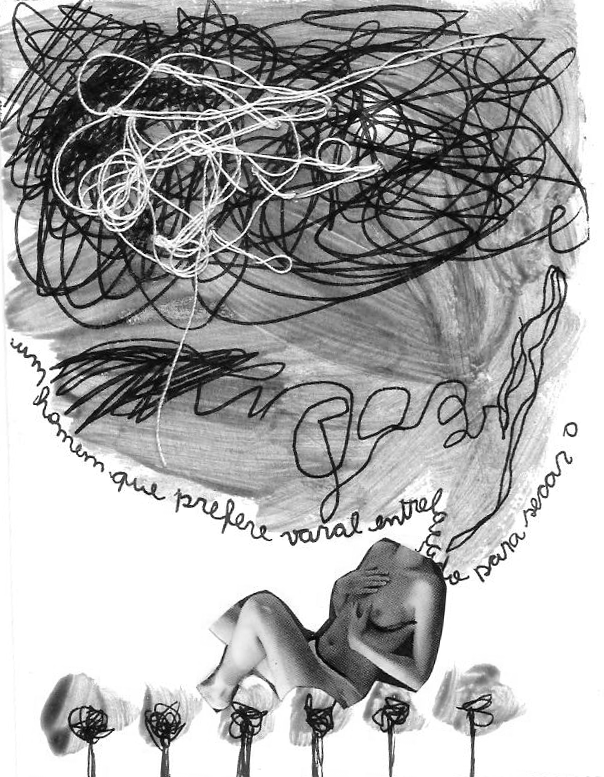 um homem que prefere varal entrelaçado para secar o